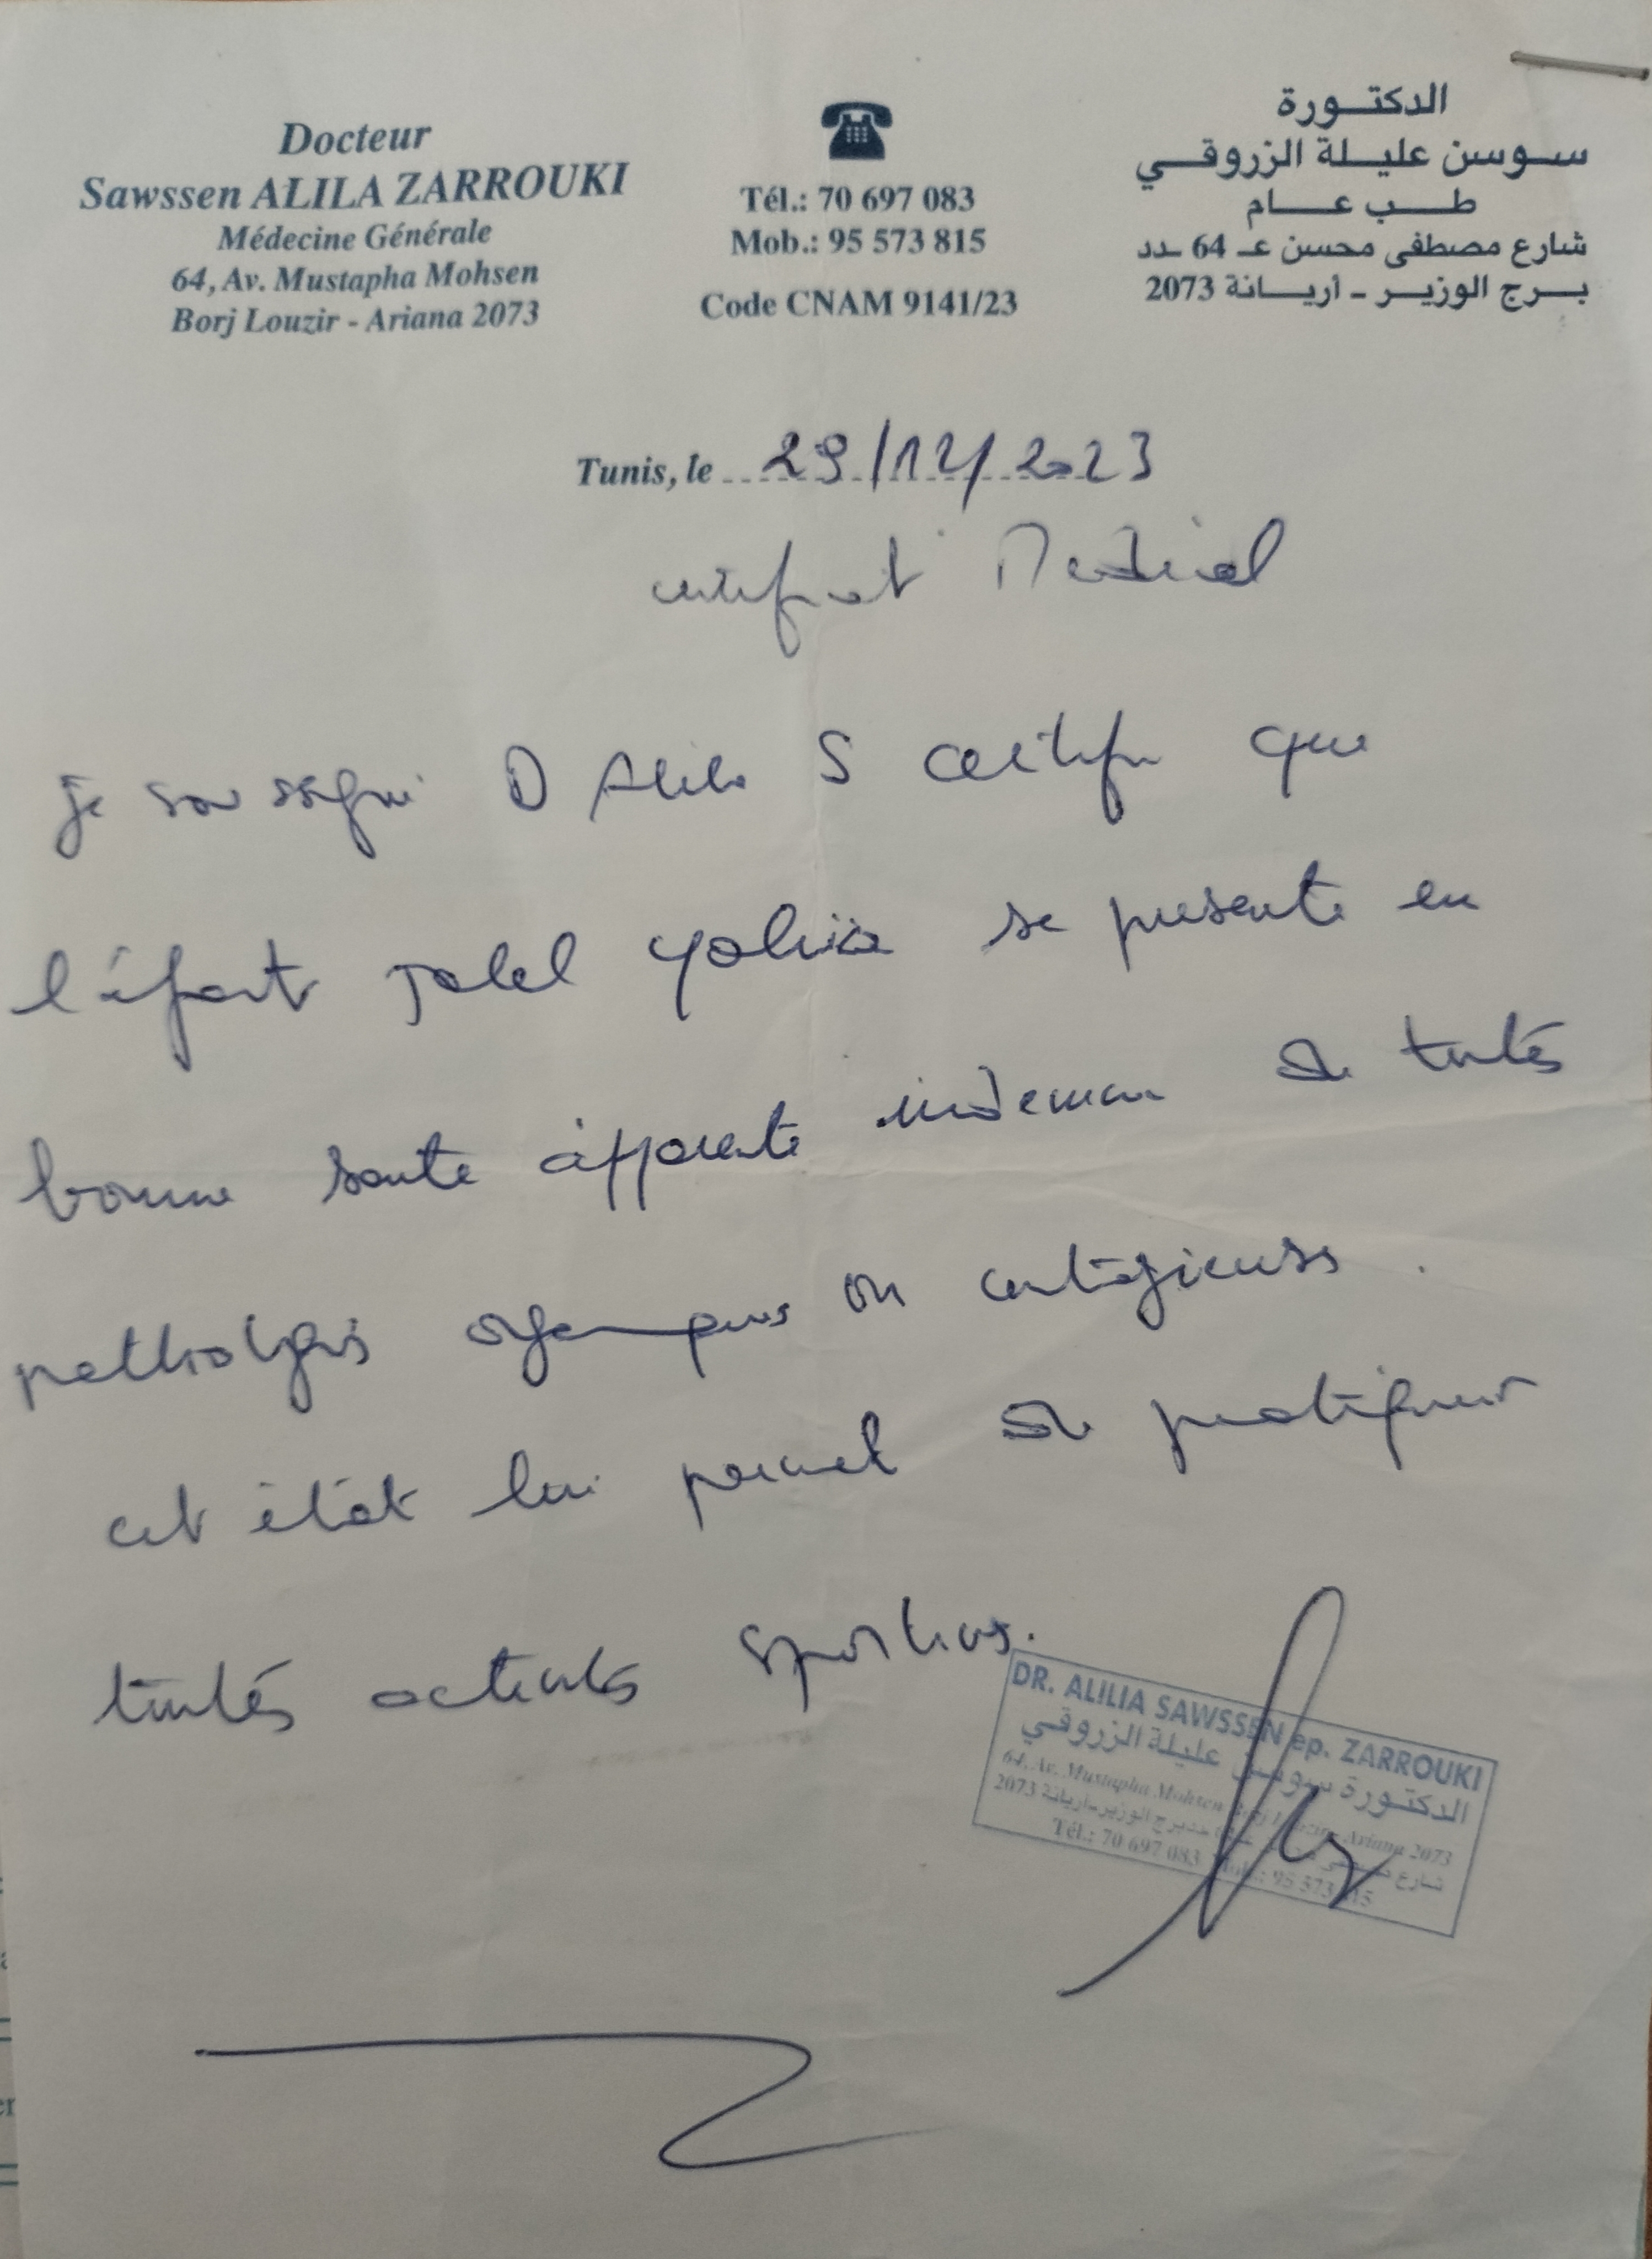 Docteur
Sawssen ALILA ZARROUKI
Médecine Générale
64, Av. Mustapha Mohsen
Borj Louzir - Ariana 2073
Tél.: 70 697 083
Mob.: 95 573 815
Code CNAM 9141/23
الدكتورة
سوسن عليلة الزروقي
طب عام
شارع مصطفى محسن عـ 64 ـدد
برج الوزير - أريانة 2073
Tunis, le 29/12/2023
certificat Medical
je sou signé D Alila S certifie que
l'enfant Jalel Yahia se presente en
bonne santé apparente indemne de toutes
pathologies organiques ou contagieuses.
cet état lui permet de pratiquer
toutes activités sportives.
DR. ALILIA SAWSSEN ep. ZARROUKI
الدكتورة سوسن عليلة الزروقي
64, Av. Mustapha Mohsen Borj Louzir - Ariana 2073
شارع برج الوزير-أريانة 2073
Tél.: 70 697 083 Mob.: 95 573 815